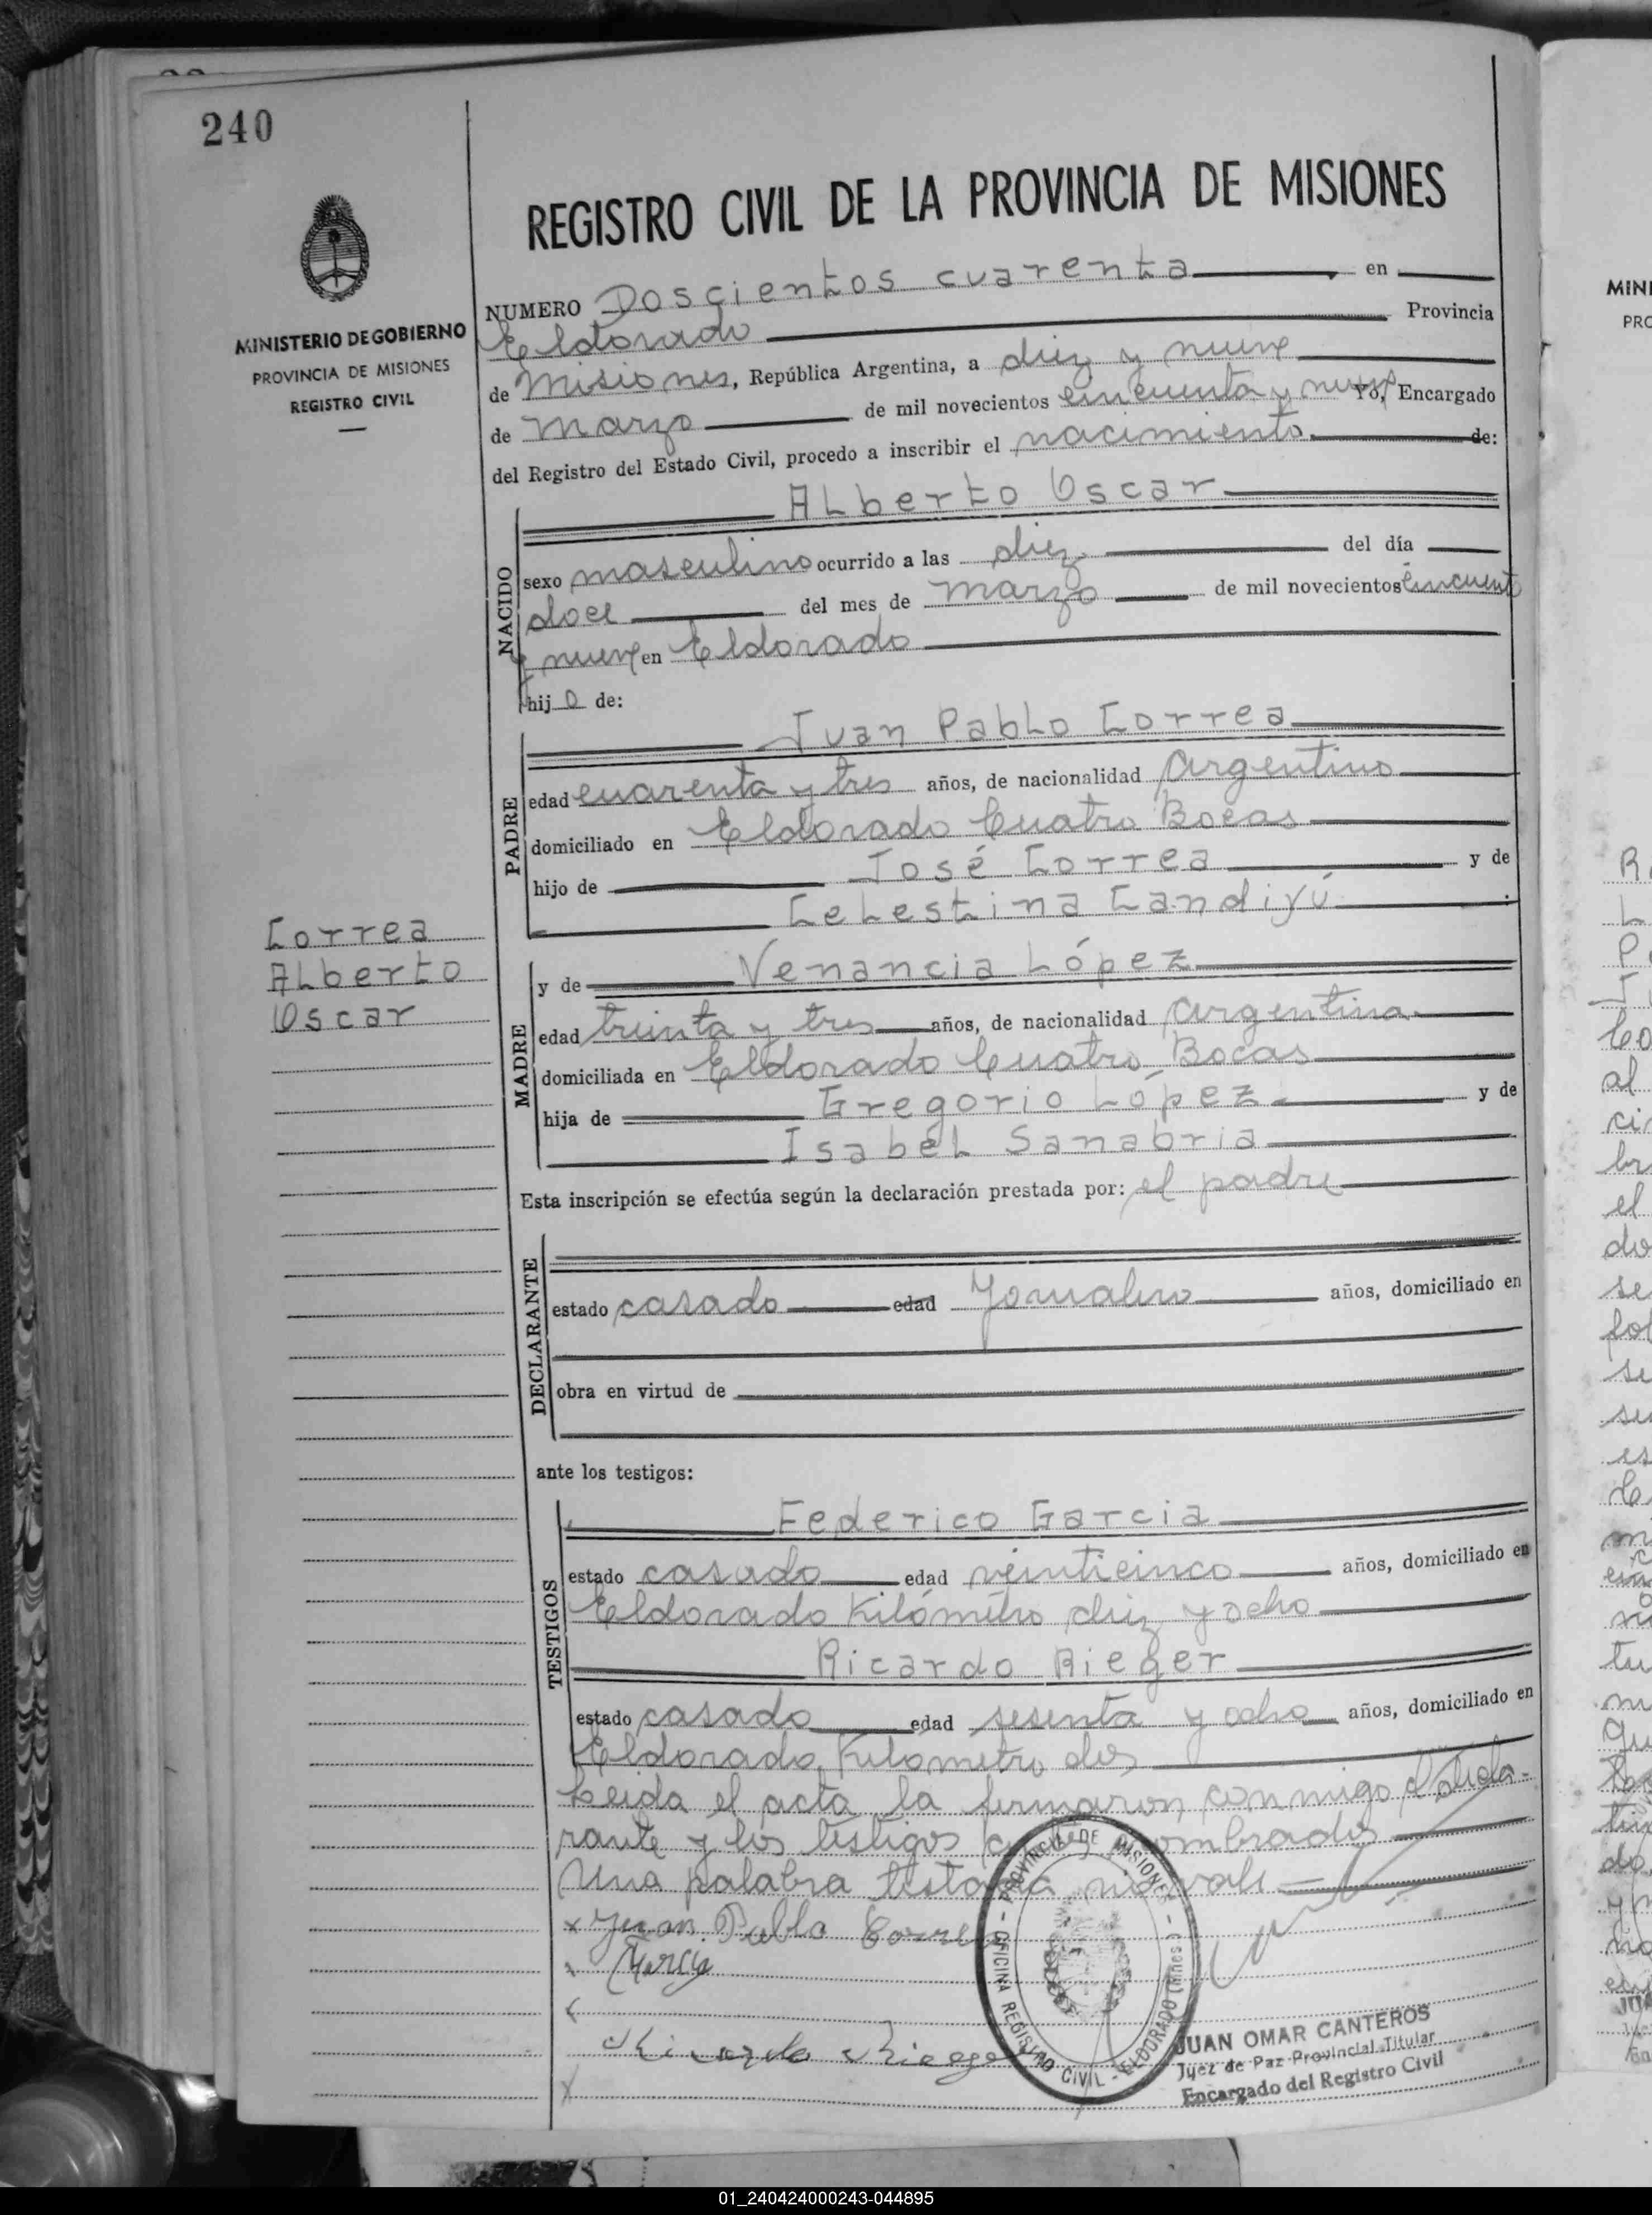 240
MINISTERIO DE GOBIERNO
PROVINCIA DE MISIONES
REGISTRO CIVIL
REGISTRO CIVIL DE LA PROVINCIA DE MISIONES
NUMERO Doscientos cuarenta en
Eldorado Provincia
de Misiones, República Argentina, a diez y nueve
de marzo de mil novecientos cincuenta y nueve Yo, Encargado
del Registro del Estado Civil, procedo a inscribir el nacimiento de:
NACIDO
Alberto Oscar
sexo masculino ocurrido a las diez del día
doce del mes de marzo de mil novecientos cincuenta
y nueve en Eldorado
hijo de:
PADRE
Juan Pablo Correa
edad cuarenta y tres años, de nacionalidad Argentino
domiciliado en Eldorado Cuatro Bocas
hijo de José Correa y de
Celestina Candiyú
Correa
Alberto
Oscar
MADRE
y de Venancia López
edad treinta y tres años, de nacionalidad Argentina
domiciliada en Eldorado Cuatro Bocas
hija de Gregorio López y de
Isabel Sanabria
Esta inscripción se efectúa según la declaración prestada por: el padre
DECLARANTE
estado casado edad Jornalero años, domiciliado en
obra en virtud de
ante los testigos:
TESTIGOS
Federico Garcia
estado casado edad veinticinco años, domiciliado en
Eldorado Kilómetro diez y ocho
Ricardo Rieger
estado casado edad sesenta y ocho años, domiciliado en
Eldorado, Kilómetro dos
Leida el acta la firmaron conmigo el decla-
rante y los testigos nombrados
Una palabra testada no vale
x Juan Pablo Correa
Ricardo Rieger
PROVINCIA DE MISIONES - OFICINA REGISTRO CIVIL - ELDORADO (Mnes.)
JUAN OMAR CANTEROS
Juez de Paz Provincial Titular
Encargado del Registro Civil
01_240424000243-044895